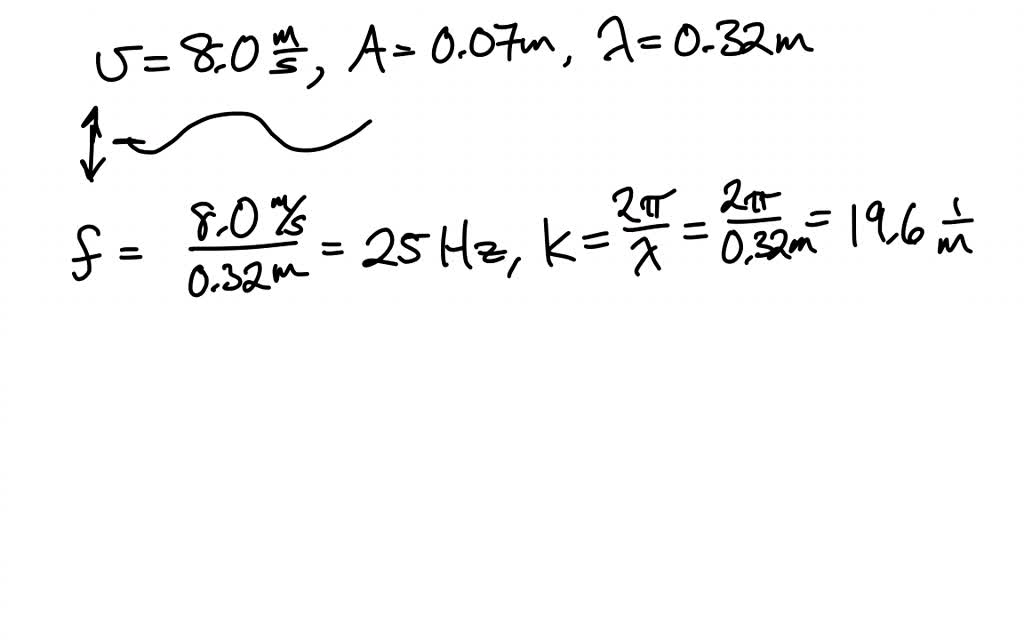 v = 8.0 m/s, A = 0.07m, λ = 0.32m
f = 8.0 m/s / 0.32m = 25 Hz, k = 2π/λ = 2π/0.32m = 19.6 1/m